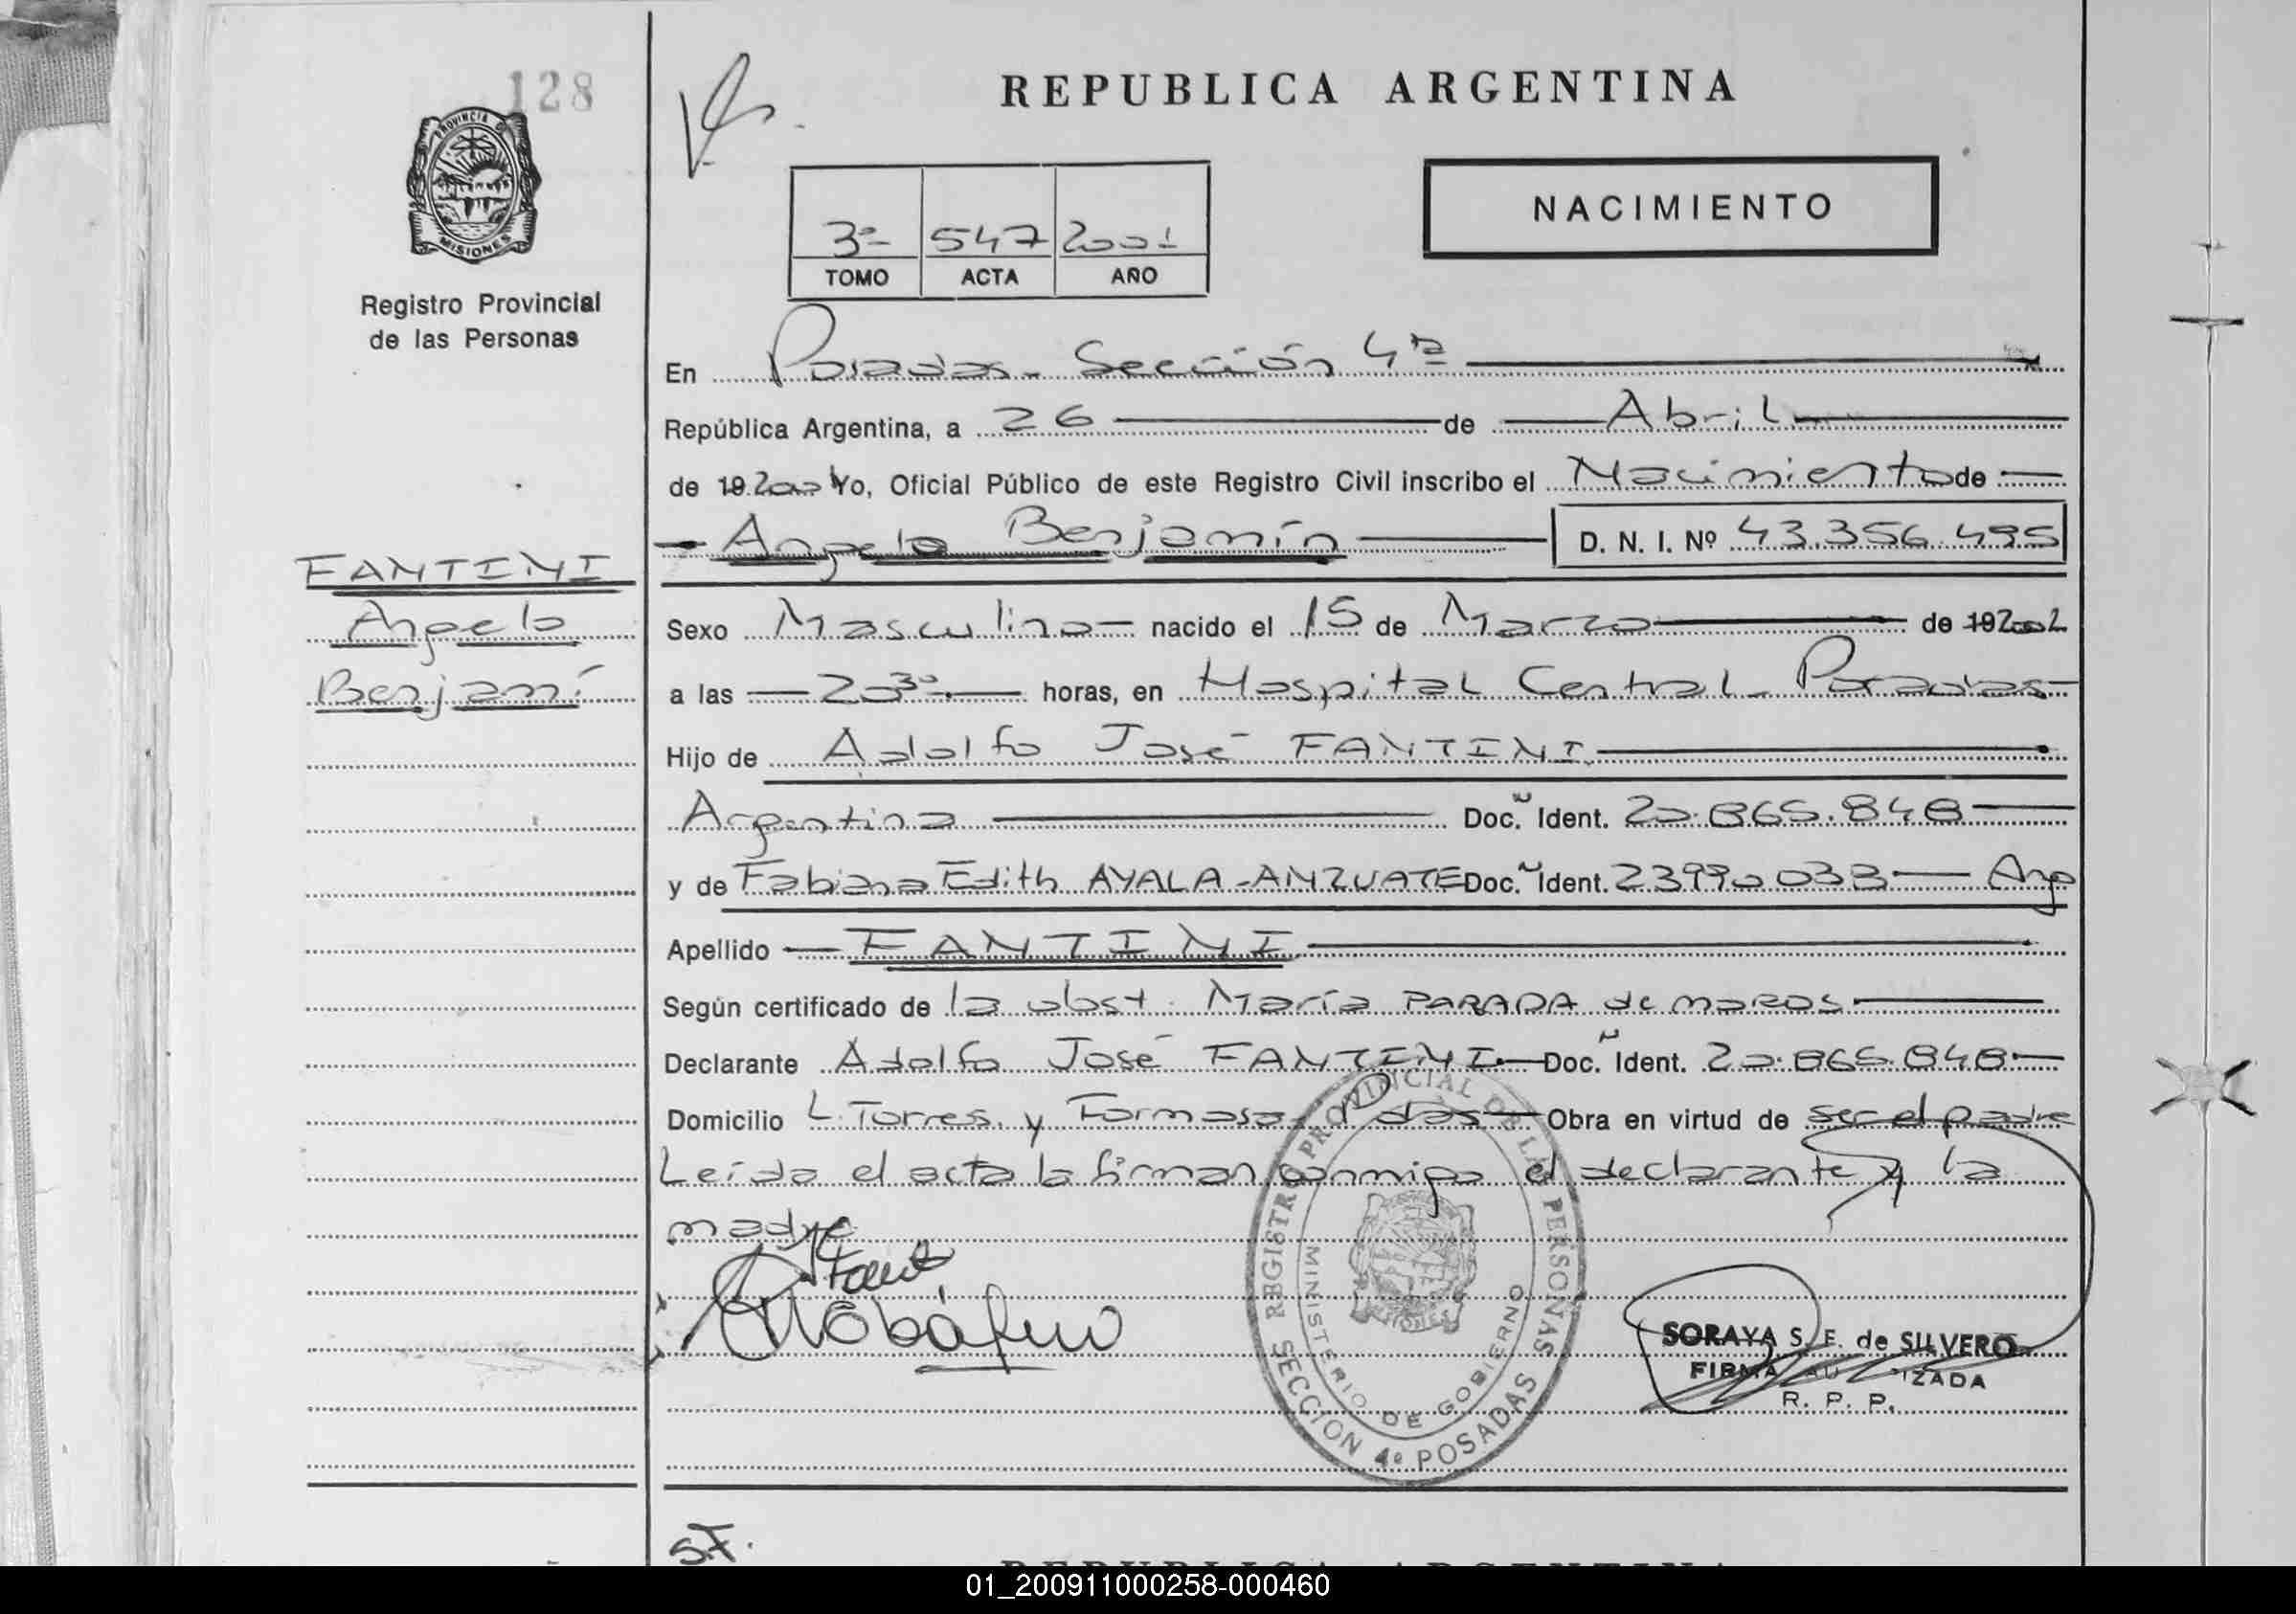 128
PROVINCIA D
MISIONES
Registro Provincial
de las Personas
REPUBLICA ARGENTINA
NACIMIENTO
3ª 547 2001
TOMO ACTA AÑO
En Posadas - Sección 4ª
República Argentina, a 26 de Abril
de 19 2001 Yo, Oficial Público de este Registro Civil inscribo el Nacimiento de
Angelo Benjamín D. N. I. Nº 43.356.495
FANTINI
Angelo
Benjamí
Sexo Masculino nacido el 15 de Marzo de 19 2001
a las 20 30 horas, en Hospital Central - Posadas
Hijo de Adolfo José FANTINI
Argentina Doc. Ident. 20.865.848
y de Fabiana Edith AYALA - ANZUATE Doc. Ident. 23990033 Arg
Apellido FANTINI
Según certificado de la obst. María PARADA de
Declarante Adolfo José FANTINI Doc. Ident. 20.865.848
Domicilio L. Torres y Formosa - Pdas Obra en virtud de ser el padre
Leída el acta la firman conmigo el declarante y la
madre
REGISTRO PROVINCIAL DE LAS PERSONAS
MINISTERIO DE GOBIERNO
SECCION 4º POSADAS
SORAYA S. E. de SILVERO
FIRMA AU IZADA
R. P. P.
REPUBLICA ARGENTINA
01_200911000258-000460